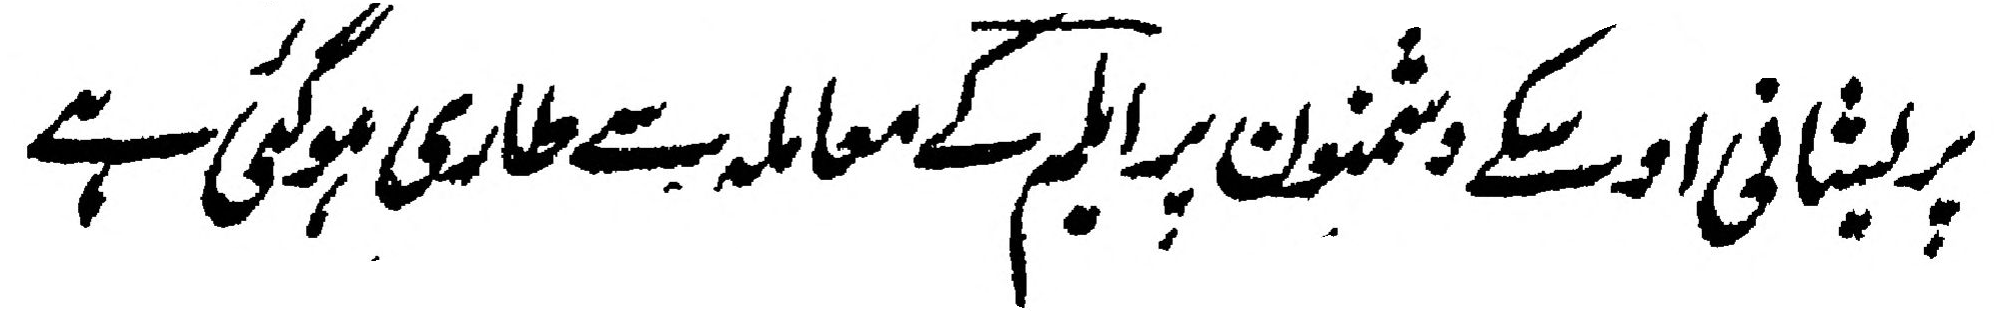 پریشانی اوسکے دشمنون پر ابلیم کے معاملہ سے طاری ہوگئی ہے